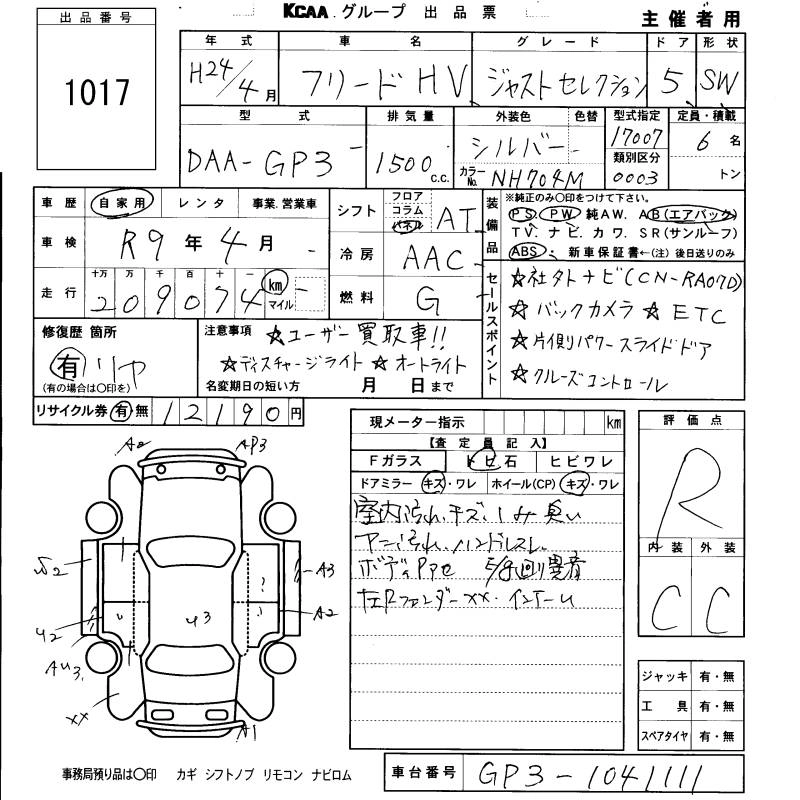 出品番号
1017
KCAA グループ 出品票
主催者用
年式 車名 グレード ドア 形状
H24/4月 フリードHV ジャストセレクション 5 SW
型式 排気量 外装色 色替 型式指定 定員・積載
DAA-GP3 1500 c.c. シルバー 17007 6名
カラーNo. NH704M 類別区分 0003 トン
車歴 自家用 レンタ 事業.営業車
車検 R9年4月
走行 十万 万 千 百 十 一
209074 km マイル
シフト フロア コラム パネル AT
冷房 AAC
燃料 G
装備品 ※純正のみ〇印をつけて下さい。
PS. PW 純AW. AB(エアバック)
TV. ナビ. カワ. SR(サンルーフ)
ABS 新車保証書←(注)後日送りのみ
セールスポイント
☆社外ナビ(CN-RA07D)
☆バックカメラ ☆ETC
☆片側パワースライドドア
☆クルーズコントロール
修復歴 箇所
有
(有の場合は〇印を)
注意事項 ☆ユーザー買取車!!
☆ディスチャージライト ☆オートライト
名変期日の短い方 月 日まで
リサイクル券 有 無 12190円
現メーター指示 km
【査定員記入】
Fガラス トビ石 ヒビワレ
ドアミラー キズ・ワレ ホイール(CP) キズ・ワレ
室内汚れ.キズ.シミ 臭い
ハンドルスレ
ボディ
左Rフェンダーxx.
評価点
R
内装 外装
C C
ジャッキ 有・無
工具 有・無
スペアタイヤ 有・無
A2 AP3
A3
A2
U2
U3
AU3
xx
A1
事務局預り品は〇印 カギ シフトノブ リモコン ナビロム
車台番号 GP3-1041111